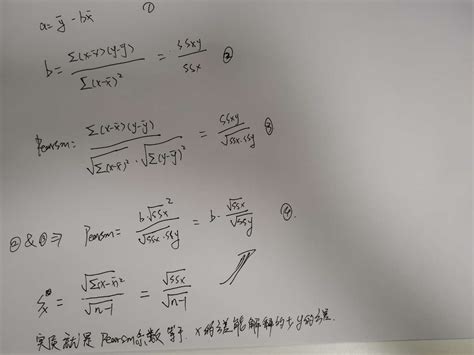 a = ȳ - bx̄ ①
b = Σ(x-x̄)(y-ȳ) / Σ(x-x̄)² = ssxy / ssx ②
Pearson = Σ(x-x̄)(y-ȳ) / √Σ(x-x̄)² · √Σ(y-ȳ)² = ssxy / √ssx·ssy ③
② & ③ ⇒ Pearson = b√ssx² / √ssx·ssy = b · √ssx / √ssy ④
Sx = √Σ(x-x̄)² / √n-1 = √ssx / √n-1
实质就是 Pearson系数等于 x的 差能解释的 y的 差.